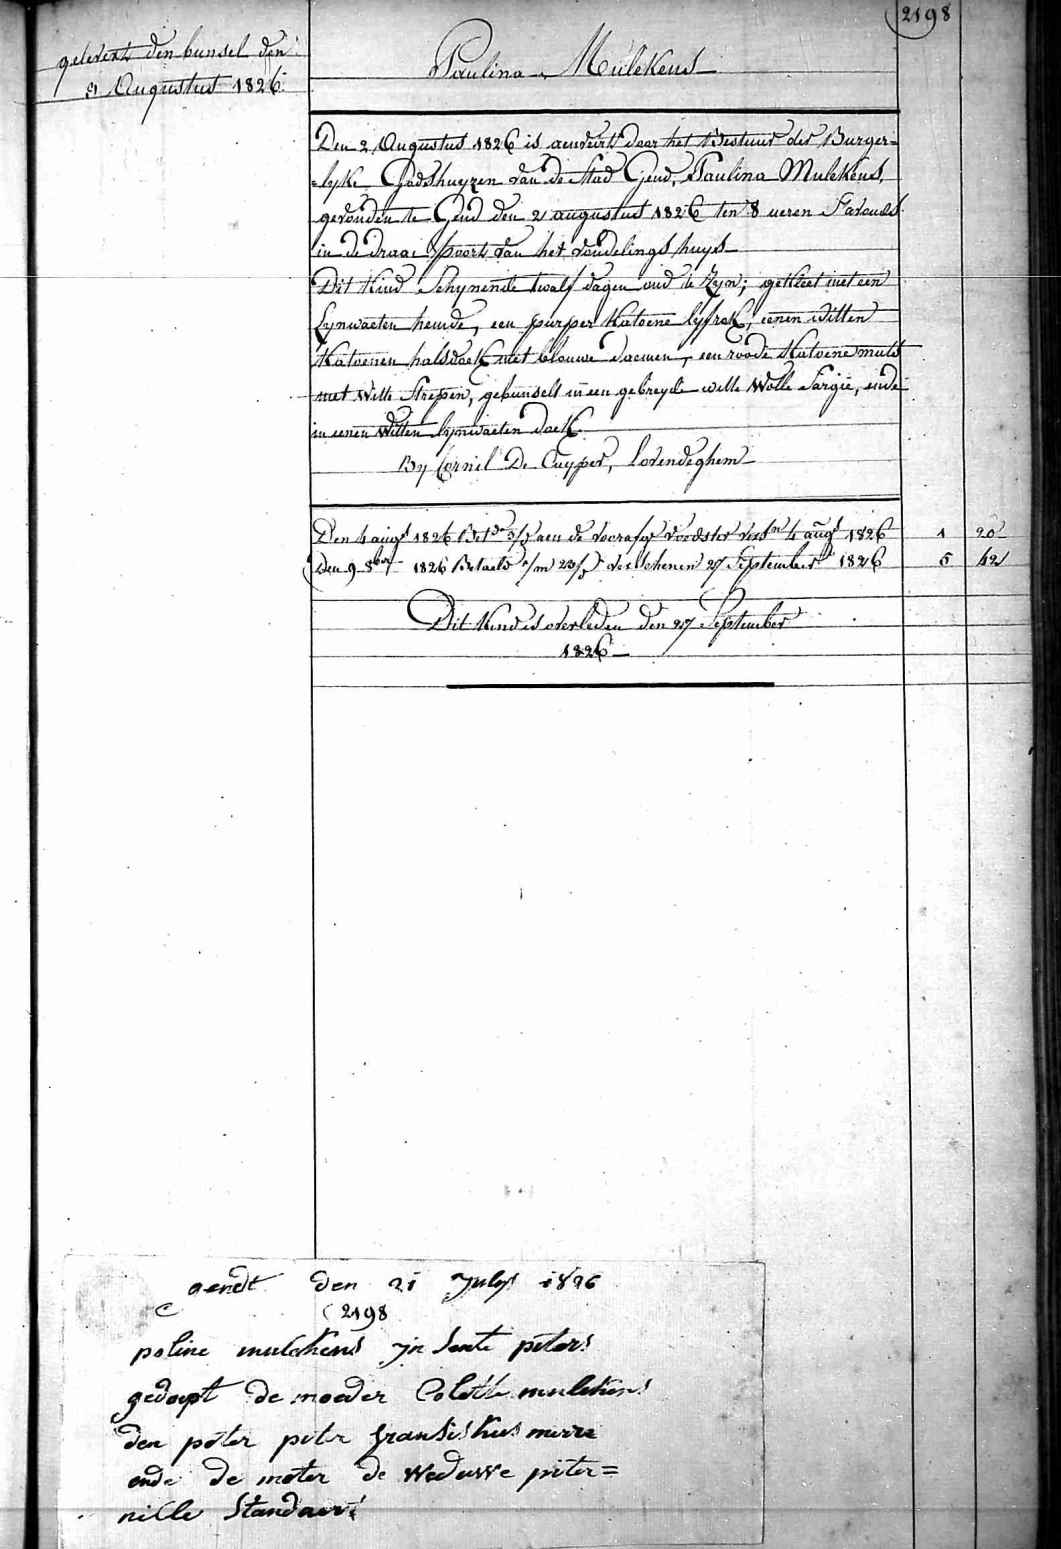 2198
gelevert den bunsel den
3 Augustus 1826.
Paulina Mulekens
Den 2 Augustus 1826 is aenveirt door het Bestuur der Burger=
=lyke Godshuyzen van de Stad Gend, Paulina Mulekens,
gevonden te Gend den 2 augustus 1826 ten 8 ueren S'avonds
in de draai poort van het vondelings huys
Dit Kind Schynende twalf dagen oud te Zyn; gekleet met een
Lynwaeten hemde, een purper Katoene lyfrok, eenen Witten
Katoenen halsdoek met blauwe daemen, een roode Katoene muts
met Witte Strepen, gebunselt in een gebreyde witte Wolle Sargie, ende
in eenen Witten lynwaeten doek.
By Cornil De Cuyper, Lovendeghem
Den 4 augs 1826 Bet de voorafge voedster 4 augs 1826 1 20
Den 9 8ber 1826 Betaeld verschenen 27 September 1826 5 42
Dit Kind is overleden den 27 September
1826
gendt den 21 July 1826
2198
poline mulekens in sente piters
gedoopt de moeder Colette mulekens
den peter piter fransiskus
ende de meter de Weduwe piter=
nille Standaert